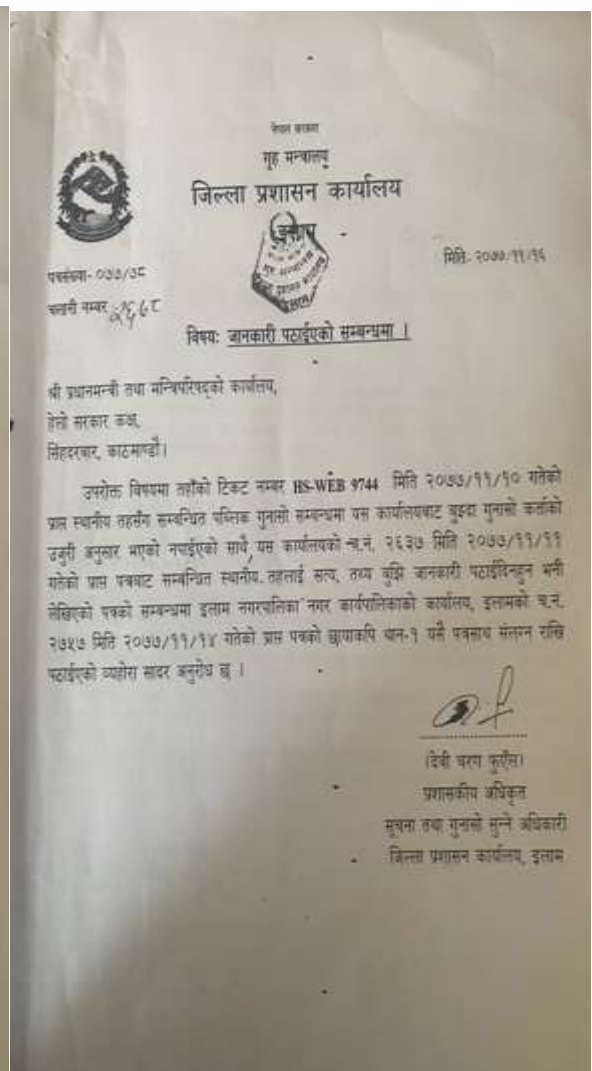 नेपाल सरकार
गृह मन्त्रालय
जिल्ला प्रशासन कार्यालय
इलाम
पत्रसंख्या- ०७७/७८
मिति- २०७७/११/१६
चलानी नम्बर २६६८
विषयः जानकारी पठाईएको सम्बन्धमा ।
श्री प्रधानमन्त्री तथा मन्त्रिपरिषद्को कार्यालय,
हेलो सरकार कक्ष,
सिंहदरबार, काठमाण्डौं।
उपरोक्त विषयमा तहाँको टिकट नम्बर HS-WEB 9744 मिति २०७७/११/१० गतेको
प्राप्त स्थानीय तहसँग सम्बन्धित पब्लिक गुनासो सम्बन्धमा यस कार्यालयबाट बुझ्दा गुनासो कर्ताको
उजुरी अनुसार भएको नपाईएको साथै यस कार्यालयको च.नं. २६३७ मिति २०७७/११/११
गतेको प्राप्त पत्रबाट सम्बन्धित स्थानीय तहलाई सत्य, तथ्य बुझि जानकारी पठाईदिनहुन भनी
लेखिएको पत्रको सम्बन्धमा इलाम नगरपालिका नगर कार्यपालिकाको कार्यालय, इलामको च.नं.
२७५७ मिति २०७७/११/१४ गतेको प्राप्त पत्रको छायाकपि थान-१ यसै पत्रसाथ संलग्न राखि
पठाईएको व्यहोरा सादर अनुरोध छ ।
(देवी चरण फुएँल)
प्रशासकीय अधिकृत
सूचना तथा गुनासो सुन्ने अधिकारी
जिल्ला प्रशासन कार्यालय, इलाम